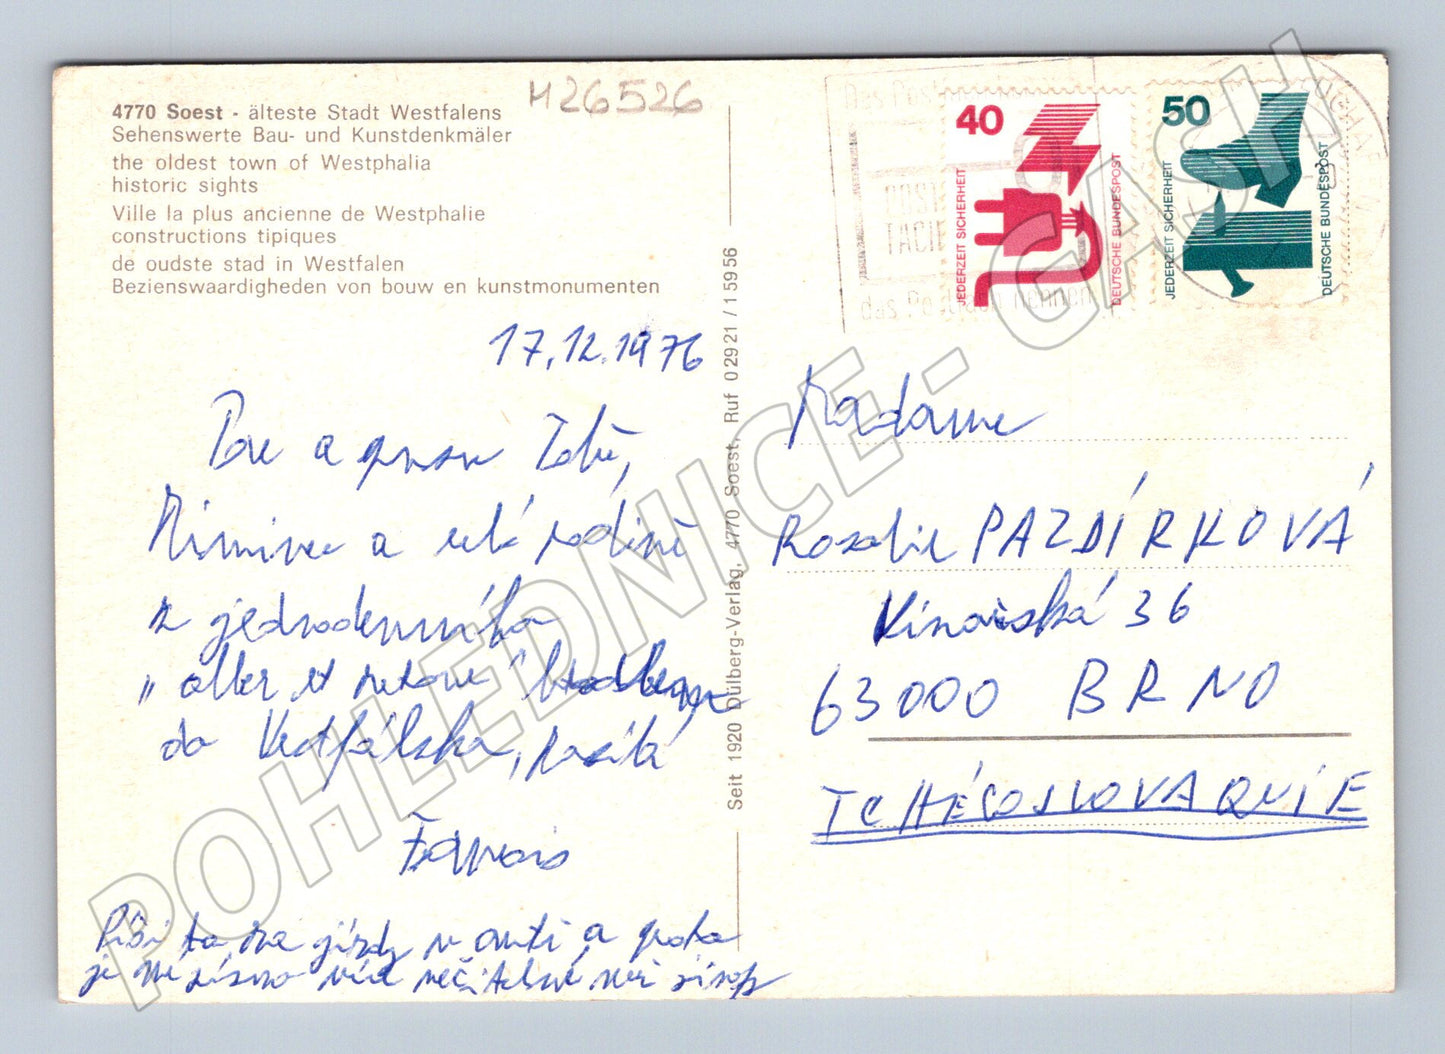 4770 Soest - älteste Stadt Westfalens
Sehenswerte Bau- und Kunstdenkmäler
the oldest town of Westphalia
historic sights
Ville la plus ancienne de Westphalie
constructions tipiques
de oudste stad in Westfalen
Bezienswaardigheden von bouw en kunstmonumenten
H26526
17.12.1976
a Tobě,
a celé rodině
z jednodenního
„aller et retour"
do Vestfálska, posílá
Píši to za jízdy v autě a proto
je mé písmo více nečitelné než
Seit 1920 Dülberg-Verlag, 4770 Soest, Ruf 02921/15956
das Postamt nennen
40
JEDERZEIT SICHERHEIT
DEUTSCHE BUNDESPOST
50
JEDERZEIT SICHERHEIT
DEUTSCHE BUNDESPOST
Madame
Rosalie PAZDÍRKOVÁ
36
63000 BRNO
TCHÉCOSLOVAQUIE
POHLEDNICE - GASH